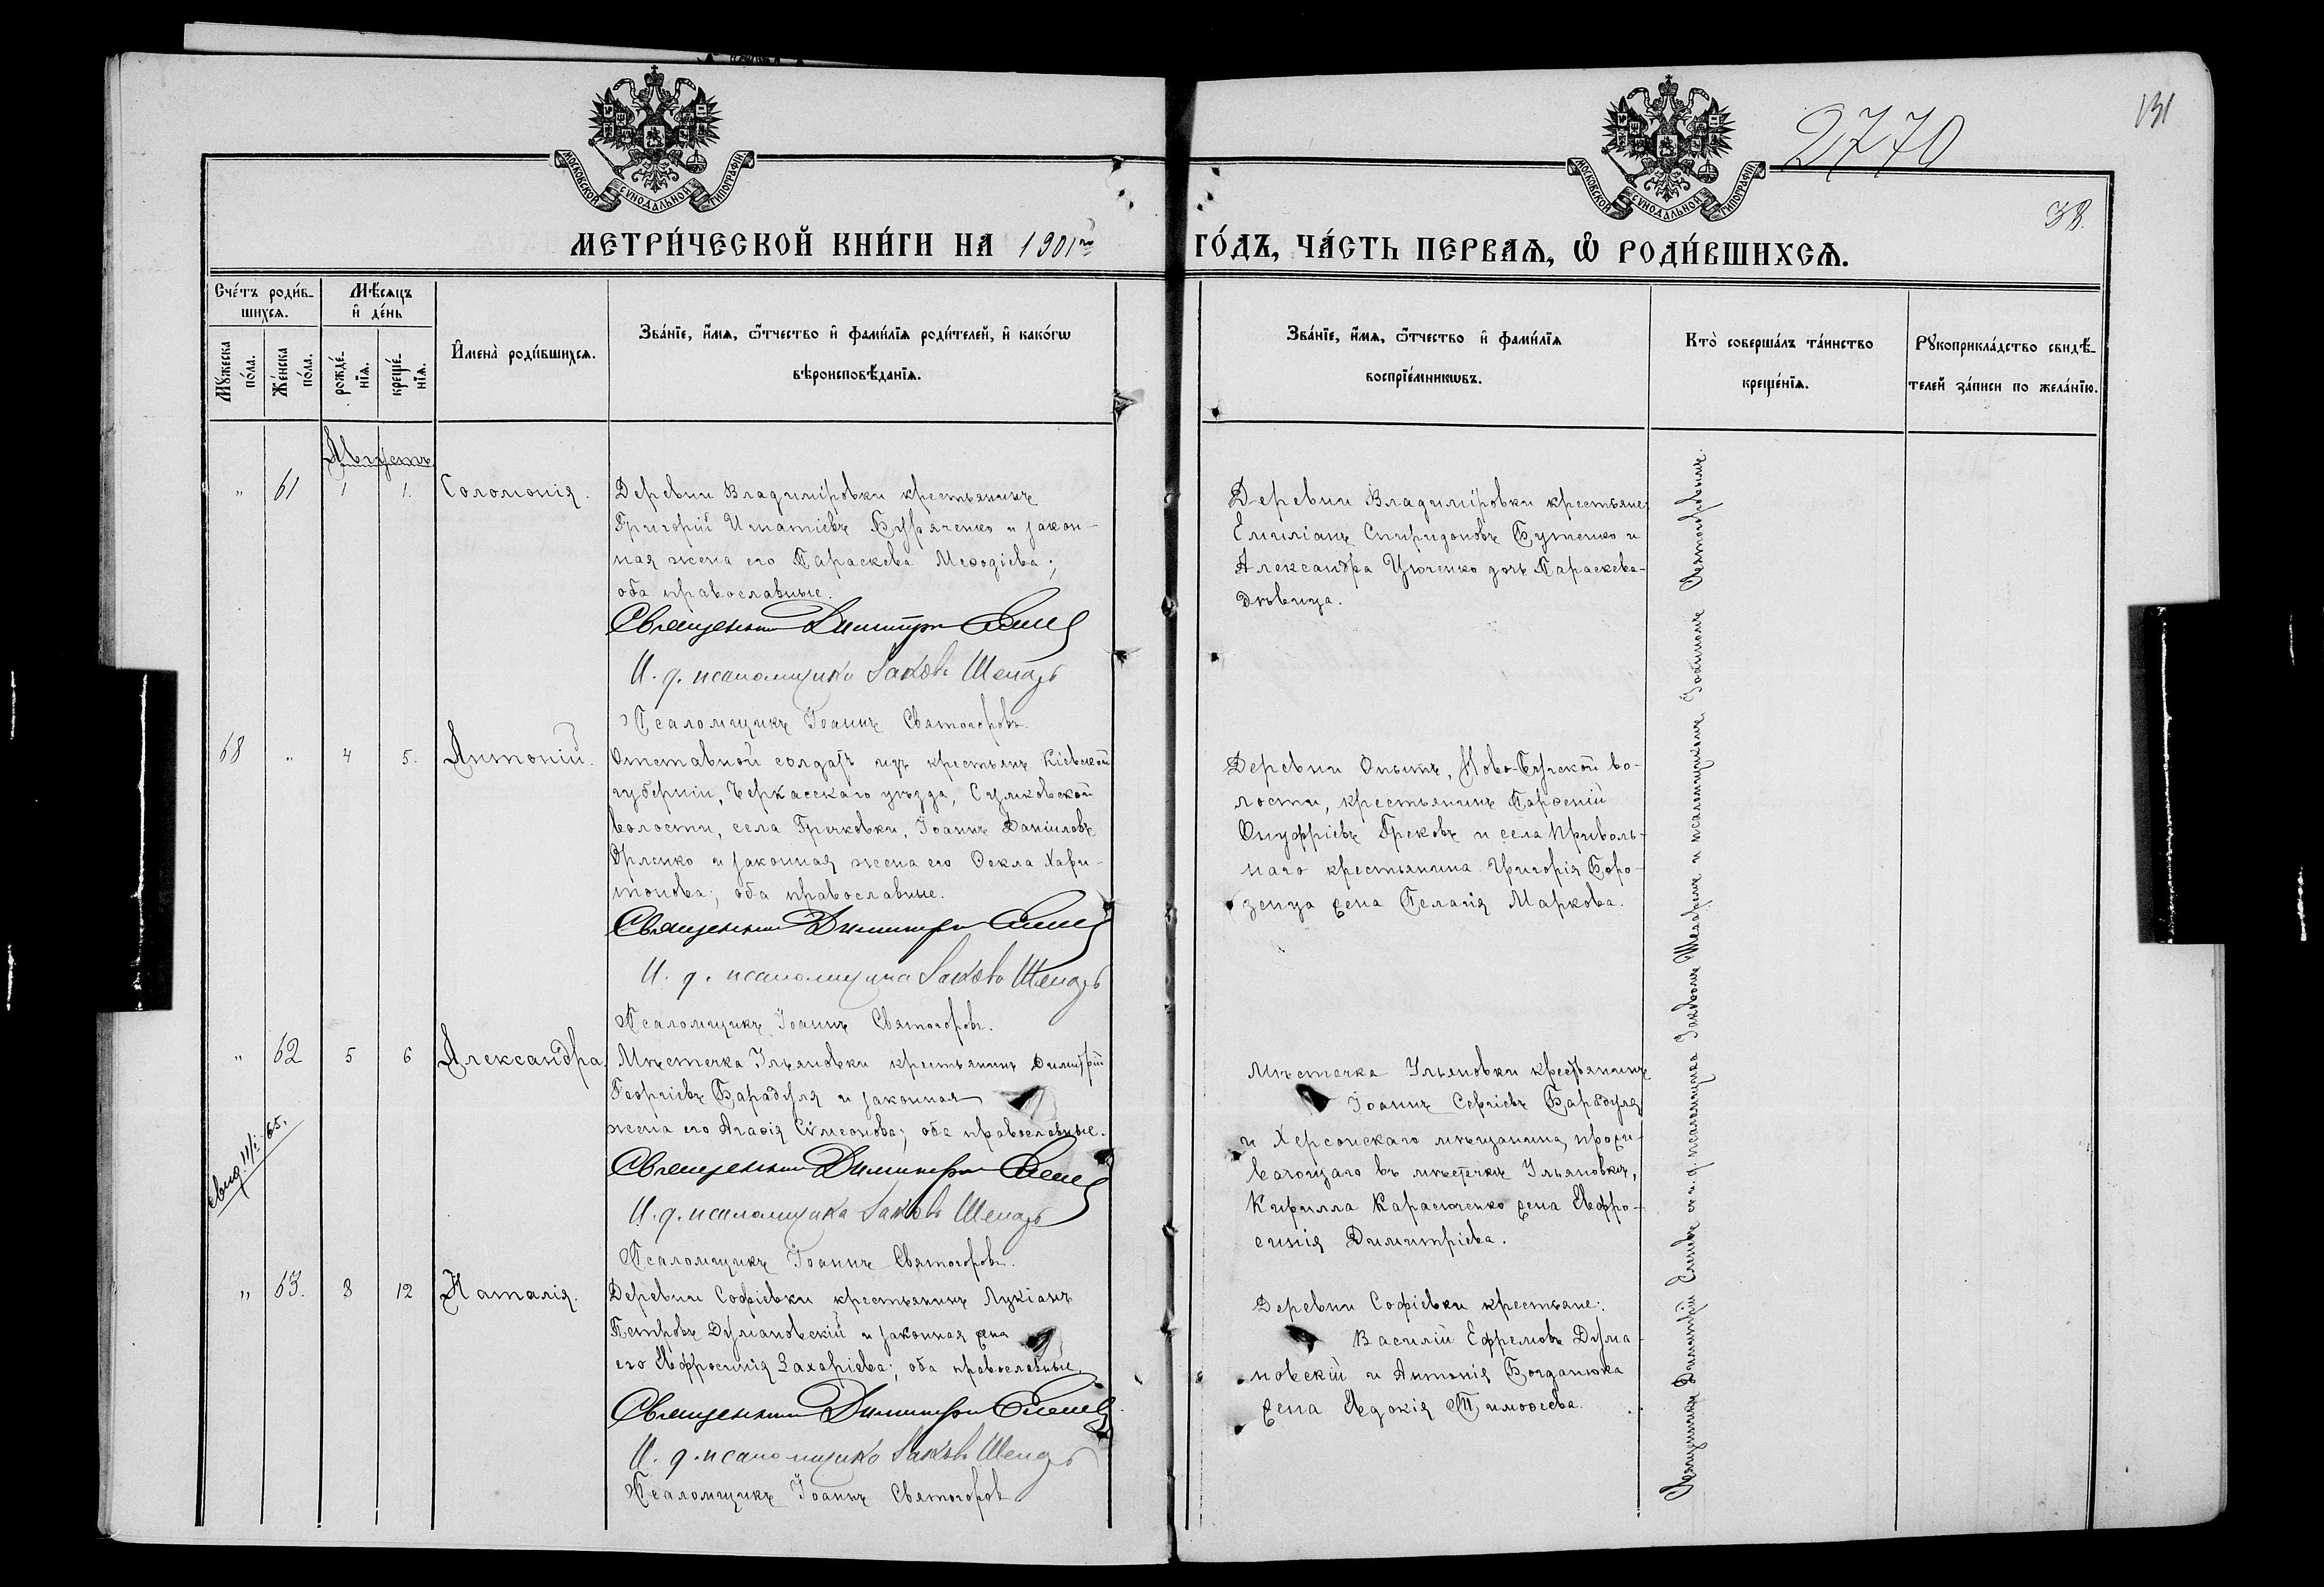 МОСКОВСКОЙ СУНОДАЛЬНОЙ ТИПОГРАФІИ
МОСКОВСКОЙ СУНОДАЛЬНОЙ ТИПОГРАФІИ
2770
131
38.
МЕТРИ́ЧЕСКОЙ КНИ́ГИ НА 1901й ГО́ДЪ, ЧА́СТЬ ПЕРВАѦ, Ѡ РОДИ́ВШИХСѦ.
Сче́тъ роди́в-
шихсѧ.
Мꙋжеска
по́ла.
Же́нска
по́ла.
Мѣ́сѧцъ
и҆ де́нь
рожде́-
нїѧ.
креще́-
нїѧ.
И҆мена̀ роди́вшихсѧ.
Зва́нїе, и҆́мѧ, ѻ҆́тчество и҆ фами́лїѧ роди́телей, и҆ како́гѡ
вѣроисповѣ́данїѧ.
Зва́нїе, и҆́мѧ, ѻ҆́тчество и҆ фами́лїѧ
воспрїе́мникѡвъ.
Кто̀ соверша́лъ та́инство
креще́нїѧ.
Рꙋкоприкла́дство свидѣ́-
телей за́писи по жела́нїю.
Августъ
" 61 1 1. Соломонія.
Деревни Владиміровки крестьянинъ
Григорій Игнатіевъ Буряченко и закон-
ная жена его Параскева Меѳодіева;
оба православные.
Священникъ Димитрій
И. д. псаломщика Іаковъ Шепазъ
Псаломщикъ Іоаннъ Святогоровъ.
Деревни Владиміровки крестьяне:
Емиліанъ Спиридоновъ Бутенко и
Александра Цюченко дочь Параскева-
дѣвица.
68 " 4 5. Антоній.
Отставной солдатъ изъ крестьянъ Кіевской
губерніи, Черкасскаго уѣзда, Сумковской
волости, села Гречковки, Іоаннъ Даніиловъ
Орленко и законная жена его Ѳекла Хари-
тонова; оба православные.
Священникъ Димитрій
И. д. псаломщика Іаковъ Шепазъ
Псаломщикъ Іоаннъ Святогоровъ.
Деревни Опытъ, Ново-Бугской во-
лости, крестьянинъ Парѳеній
Онуфріевъ Грековъ и села Приволь-
наго крестьянина Григорія Боро-
зенца жена Пелагія Маркова.
" 62 5 6 Александра.
Мѣстечка Ульяновки крестьянинъ Димитрій
Георгіевъ Барадуля и законная
жена его Агаѳія Сѵмеонова; оба православные.
Священникъ Димитрій
И. д. псаломщика Іаковъ Шепазъ
Псаломщикъ Іоаннъ Святогоровъ.
Мѣстечка Ульяновки крестьянинъ
Іоаннъ Сергіевъ Барадуля
и Херсонскаго мѣщанина, прожи-
вающаго въ мѣстечкѣ Ульяновкѣ,
Кирилла Карасюченко жена Евфро-
синія Димитріева.
" 63. 8 12 Наталія.
Деревни Софіевки крестьянинъ Лукіанъ
Петровъ Думановскій и законная жена
его Евфросинія Захаріева; оба православные.
Священникъ Димитрій
И. д. псаломщика Іаковъ Шепазъ
Псаломщикъ Іоаннъ Святогоровъ
Деревни Софіевки крестьяне:
Василій Ефремовъ Дума-
новскій и Антонія Богданюка
жена Евдокія Тимоѳеева.
Священникъ Димитрій съ и. д. псаломщика Іаковомъ и псаломщикомъ Іоанномъ Святогоровымъ.